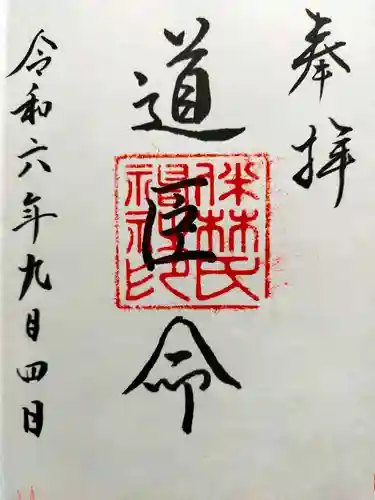 奉拝
道臣命
令和六年九月四日